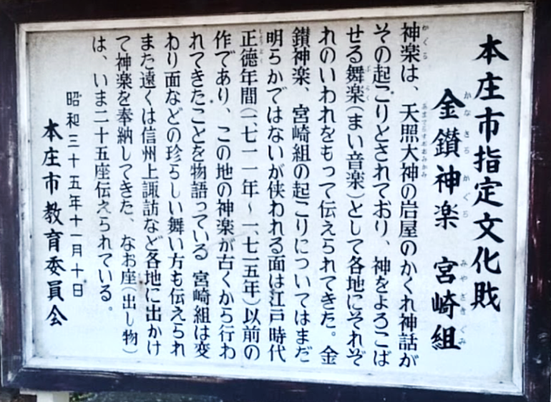 本庄市指定文化財
金鑚神楽 宮崎組
神楽は、天照大神の岩屋のかくれ神話が
その起こりとされており、神をよろこば
せる舞楽(まい音楽)として各地にそれぞ
れのいわれをもって伝えられてきた。金
鑚神楽、宮崎組の起こりについてはまだ
明らかではないが使われる面は江戸時代
正徳年間(一七一一年~一七一五年)以前の
作であり、この地の神楽が古くから行わ
れてきたことを物語っている 宮崎組は変
わり面などの珍らしい舞い方も伝えられ
また遠くは信州上諏訪など各地に出かけ
て神楽を奉納してきた、なお座(出し物)
は、いま二十五座伝えられている。
昭和三十五年十一月十日
本庄市教育委員会